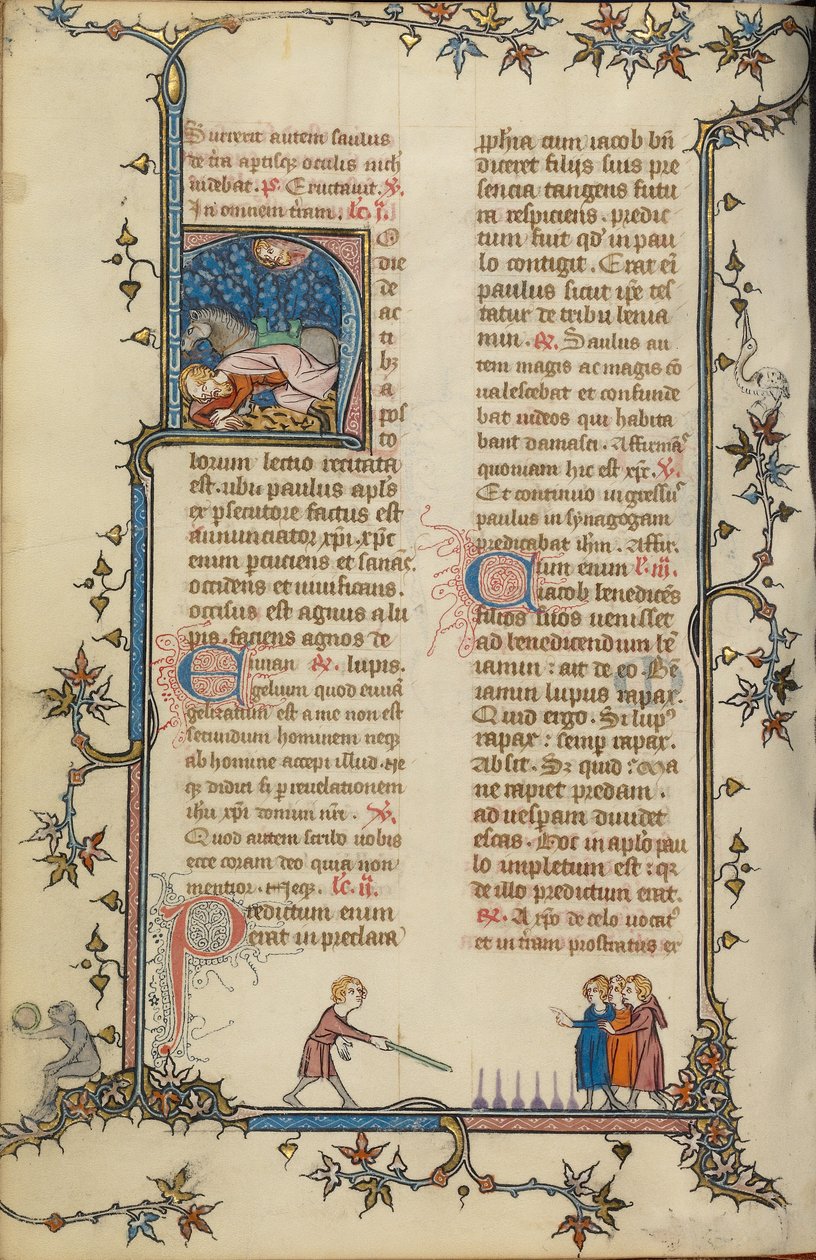 Surrexit autem saulus
de t̄ra ap̄tisq; oculis nich̄
uidebat. p̄s. Eructauit. v̄.
In omnem t̄ram. lc̄. j.
O
die
de
ac
ti
bȝ
a
pos
to
lorum lectio recitata
est. ubi paulus apl̄s
ex p̄secutore factus est
annunciator xp̄i. xp̄c
enim p̄cutiens et sanās.
occidens et uiuificans.
occisus est agnus a lu
pis. faciens agnos de
lupis.
Euuan R̄.
gelium quod euuā
gelizatum est a me non est
secundum hominem neq;
ab homine accepi illud. Ne
q; didici s; p̄ reuelationem
ih̄u xp̄i domini nr̄i. v̄.
Quod autem scribo uobis
ecce coram deo quia non
mentior. Neq;. lc̄. ij.
Predictum enim
erat in preclara
p̄ph̄ia cum iacob bn̄
diceret filijs suis pre
sencia tangens futu
ra respiciens. predic
tum fuit qd̄ in pau
lo contigit. Erat ei̅
paulus sicut ip̄e tes
tatur de tribu benia
min. R̄. Saulus au
tem magis ac magis cō
ualescebat et confunde
bat iudeos qui habita
bant damasci. Affirmās
quoniam hic est xp̄c. v̄.
Et continuo ingressus
paulus in synagogam
predicabat ih̄m. Affir.
Cum enim l̄. iij.
iacob benedicēs
filios suos uenisset
ad benedicendum bē
iamin: ait de eo. Bē
iamin lupus rapax.
Quid ergo. Si lupus
rapax: semp̄ rapax.
Absit. Sȝ quid: Ma
ne rapiet predam.
ad uesp̄am diuidet
escas. Hoc in aplo̅ pau
lo impletum est: q̄
de illo predictum erat.
R̄. A xp̄o de celo uocatus
et in t̄ram prostratus ex